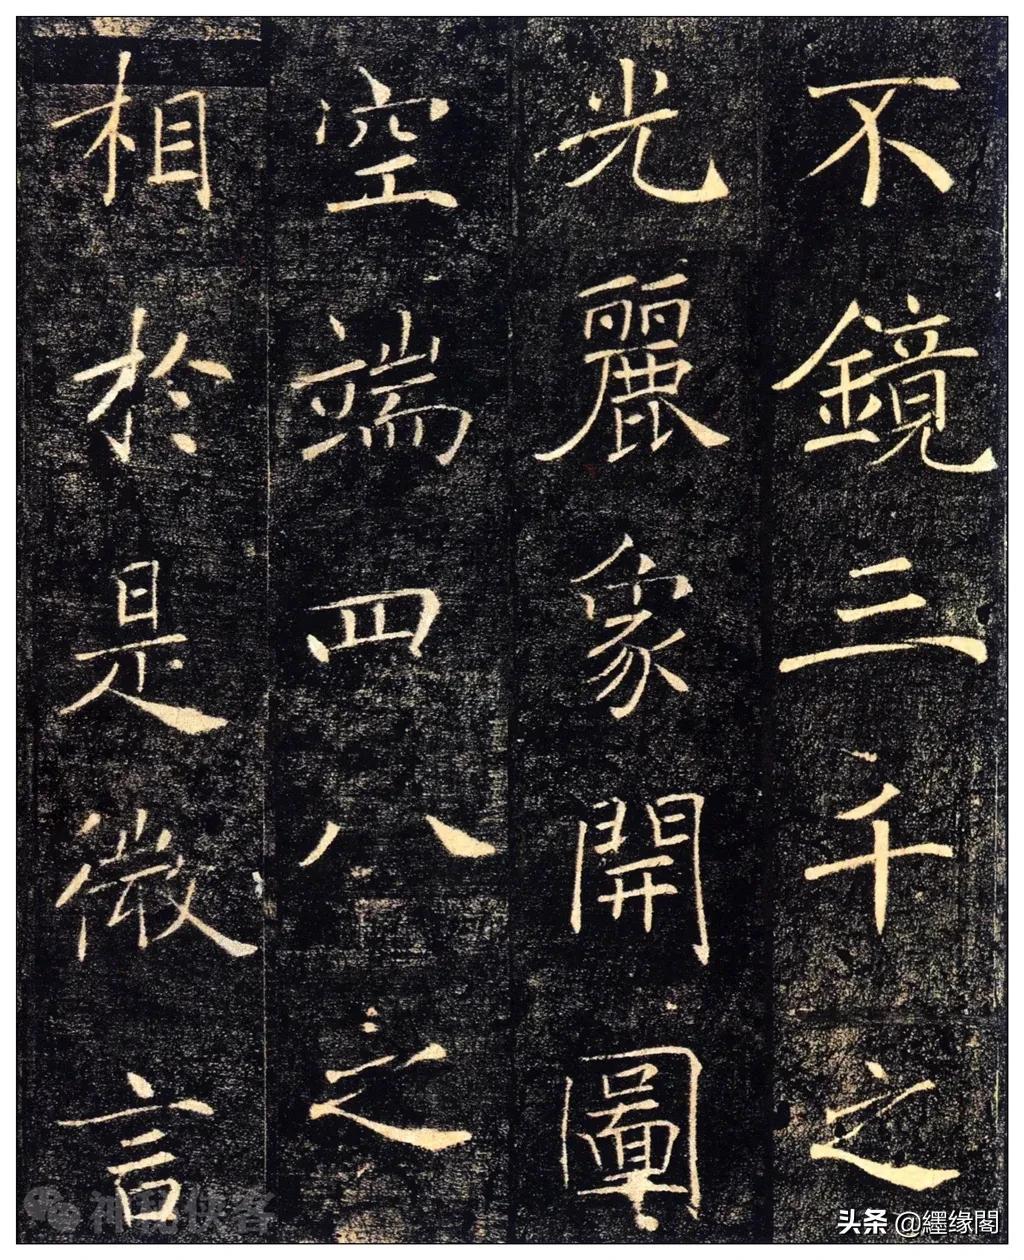 不鏡三千之
光麗象開圖
空端四八之
相於是微言
头条 @纒缘閣